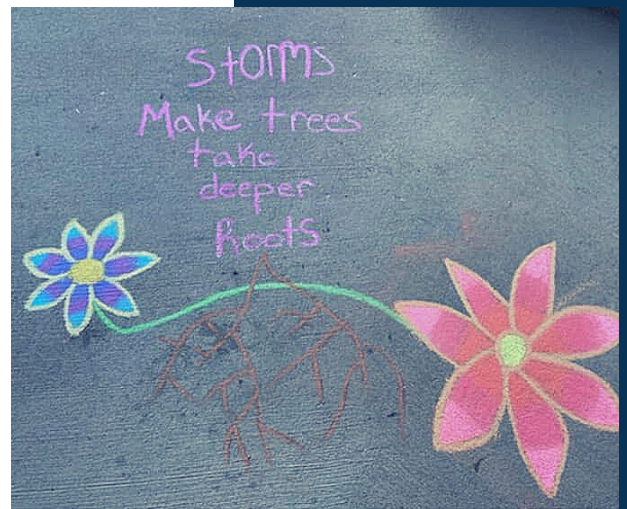 Storms
Make trees
take
deeper
Roots